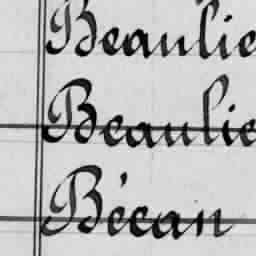 Beaulie
Beaulie
Bécan